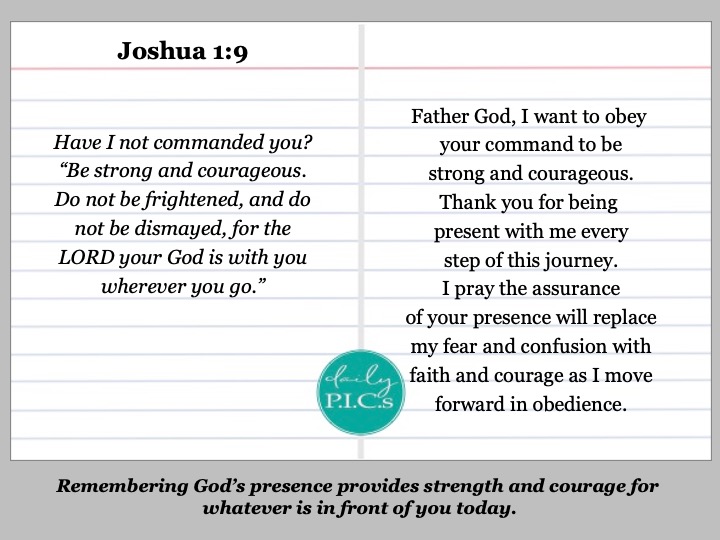 Joshua 1:9
Have I not commanded you?
“Be strong and courageous.
Do not be frightened, and do
not be dismayed, for the
LORD your God is with you
wherever you go.”
Father God, I want to obey
your command to be
strong and courageous.
Thank you for being
present with me every
step of this journey.
I pray the assurance
of your presence will replace
my fear and confusion with
faith and courage as I move
forward in obedience.
daily
P.I.C.s
Remembering God’s presence provides strength and courage for
whatever is in front of you today.